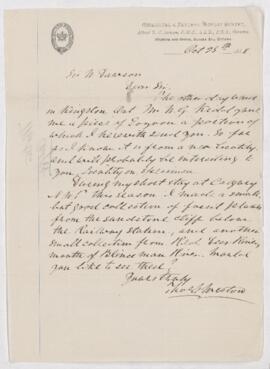 GEOLOGICAL & NATURAL HISTORY SURVEY,
Oct 25th
Sir W Dawson
Dear Sir,
The other day I was
in Kingston and Mr. W. G. Kidd gave
me a piece of Eozoon a portion of
which I herewith send you. So far
as I know it is from a new locality
and will probably be interesting to
you. Locality on specimen
During my short stay at Calgary
N.W.T. this season I made a small
but good collection of fossil plants
from the sandstone cliff below
the Railway station, and another
small collection from Red Deer River,
mouth of Blindman River. Would
you like to see these?
Yours truly